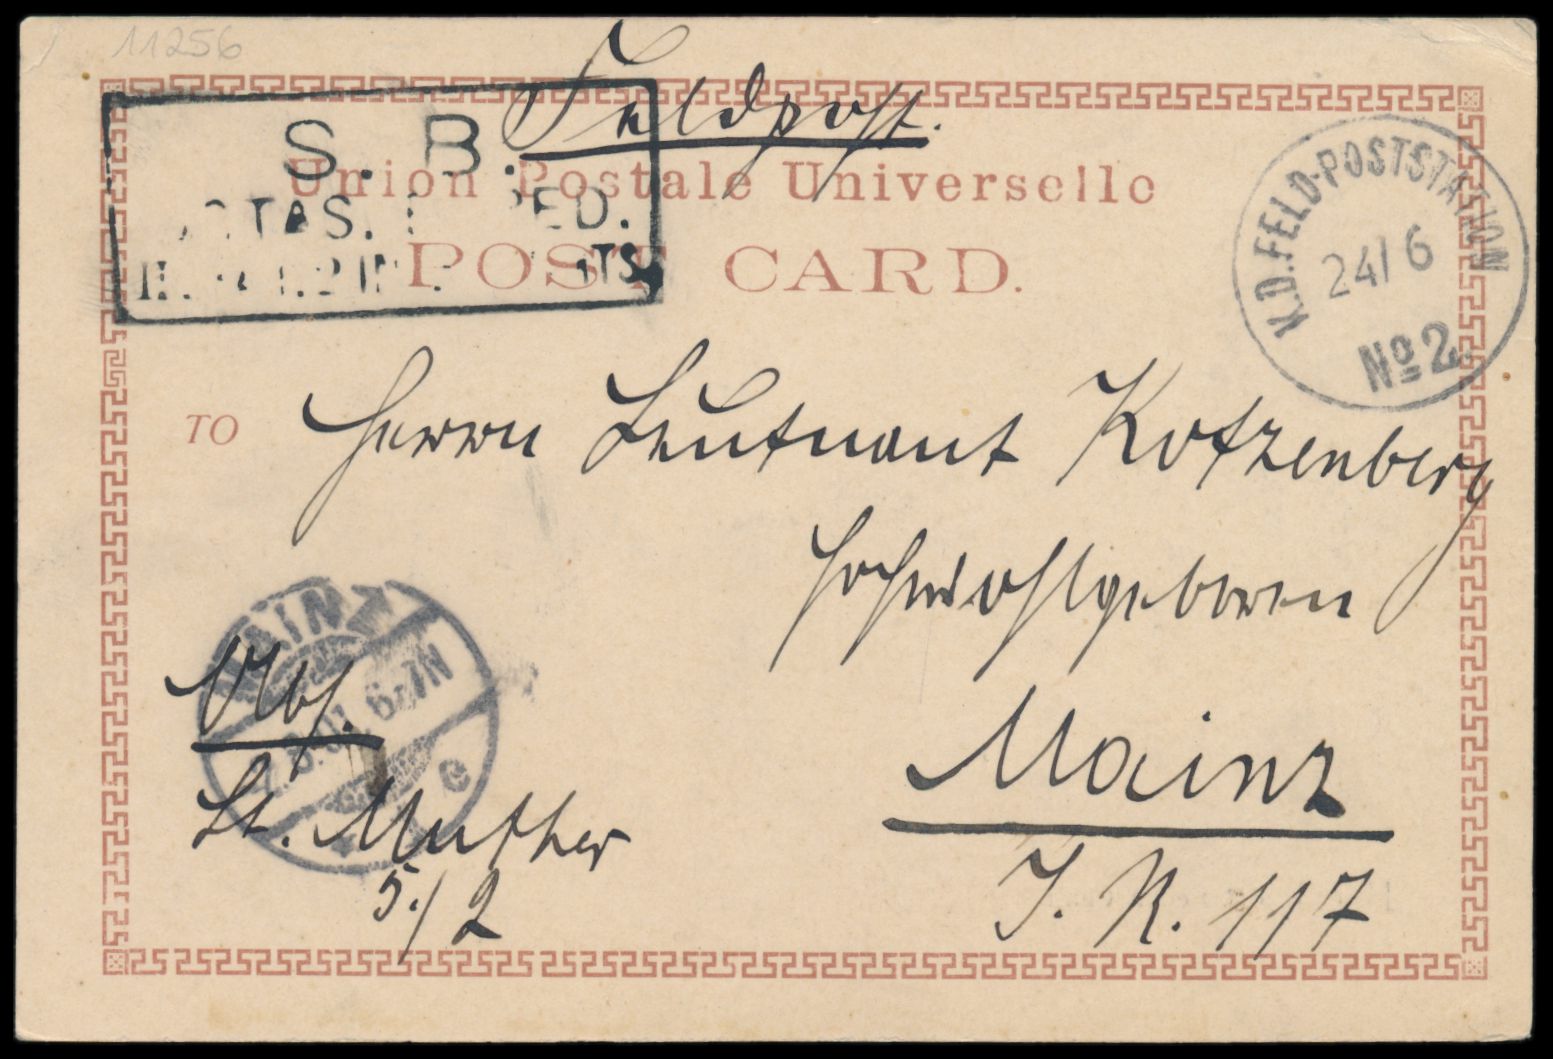 11256
Feldpost.
S. B.
Union Postale Universelle
POST CARD.
K.D.FELD-POSTSTATION
24/6
No 2
TO
Herrn Leutnant Kotzenberg
Hochwohlgeboren
Mainz
J. R. 117
MAINZ
6-7N
e
Abs.
Lt. Muther
5./2